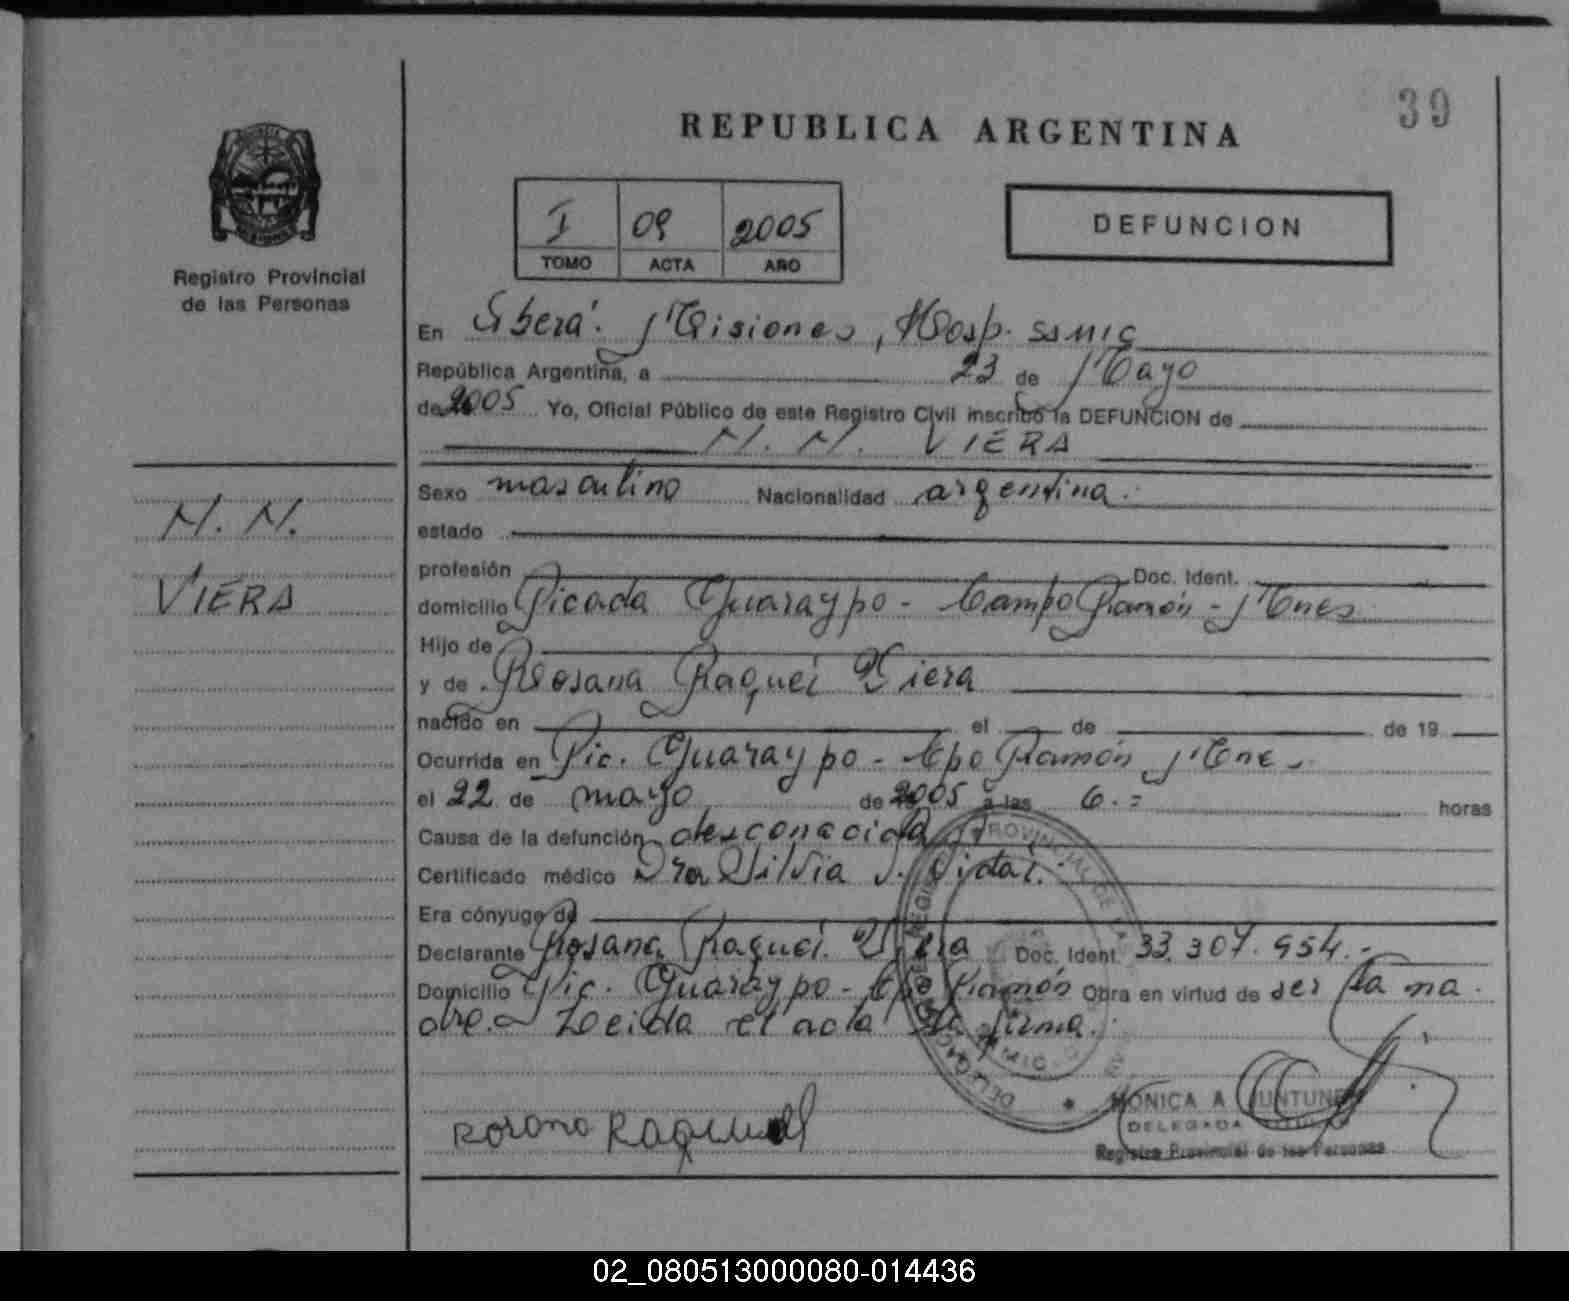 39
REPUBLICA ARGENTINA
I 09 2005
TOMO ACTA AÑO
DEFUNCION
Registro Provincial
de las Personas
En Oberá. Misiones, Hosp. SAMIC
República Argentina, a 23 de Mayo
de 2005 Yo, Oficial Público de este Registro Civil inscribo la DEFUNCION de
N. N. VIERA
N. N.
VIERA
Sexo masculino Nacionalidad argentina.
estado
profesión Doc. Ident.
domicilio Picada Guaraypo - Campo Ramón - Mnes
Hijo de
y de Rosana Raquel Viera
nacido en el de de 19
Ocurrida en Pic. Guaraypo - Cpo Ramón Mnes.
el 22 de mayo de 2005 a las 6.= horas
Causa de la defunción desconocida
Certificado médico Dra Silvia J. Vidal.
Era cónyuge de
Declarante Rosana Raquel Viera Doc. Ident. 33.307.954.-
Domicilio Pic. Guaraypo - Cpo Ramón Obra en virtud de ser la ma
dre. Leida el acta la firma.
MONICA A
DELEGADA TITULAR
Registro Provincial de las Personas
02_080513000080-014436